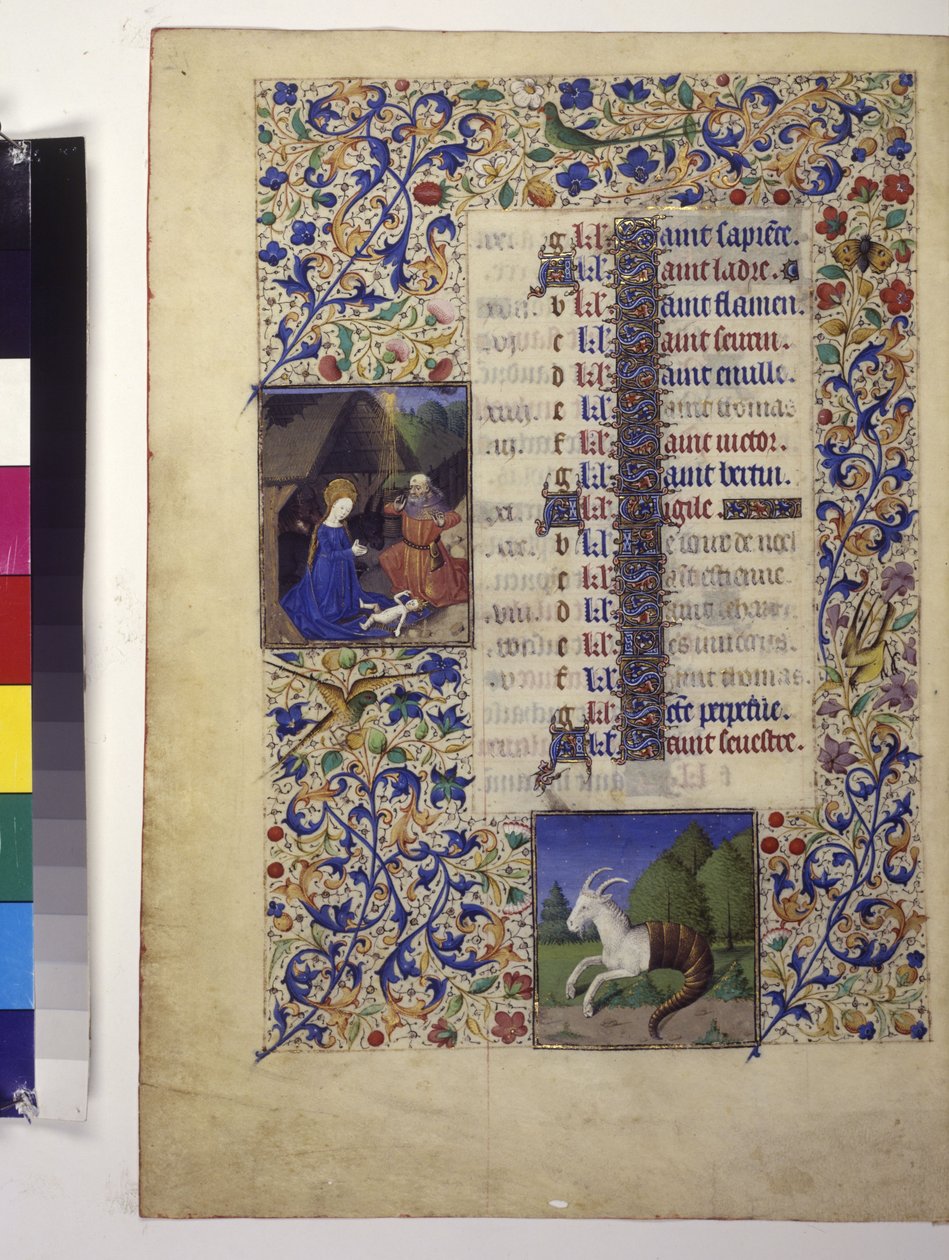 g kl Saint sapiẽce.
A kl Saint ladre.
b kl Saint flamen.
c kl Saint seurin.
d kl Saint
.xiiij. e kl Saint thomas
.iij. f kl Saint victor.
g kl Saint bertin.
.xi. A kl Vigile
b kl Le iour de noel
c kl estienne.
.viii. d kl Saint iehan.
e kl Les innocens.
.v. f kl Saint thomas.
g kl Sẽte
A kl Saint seuestre.